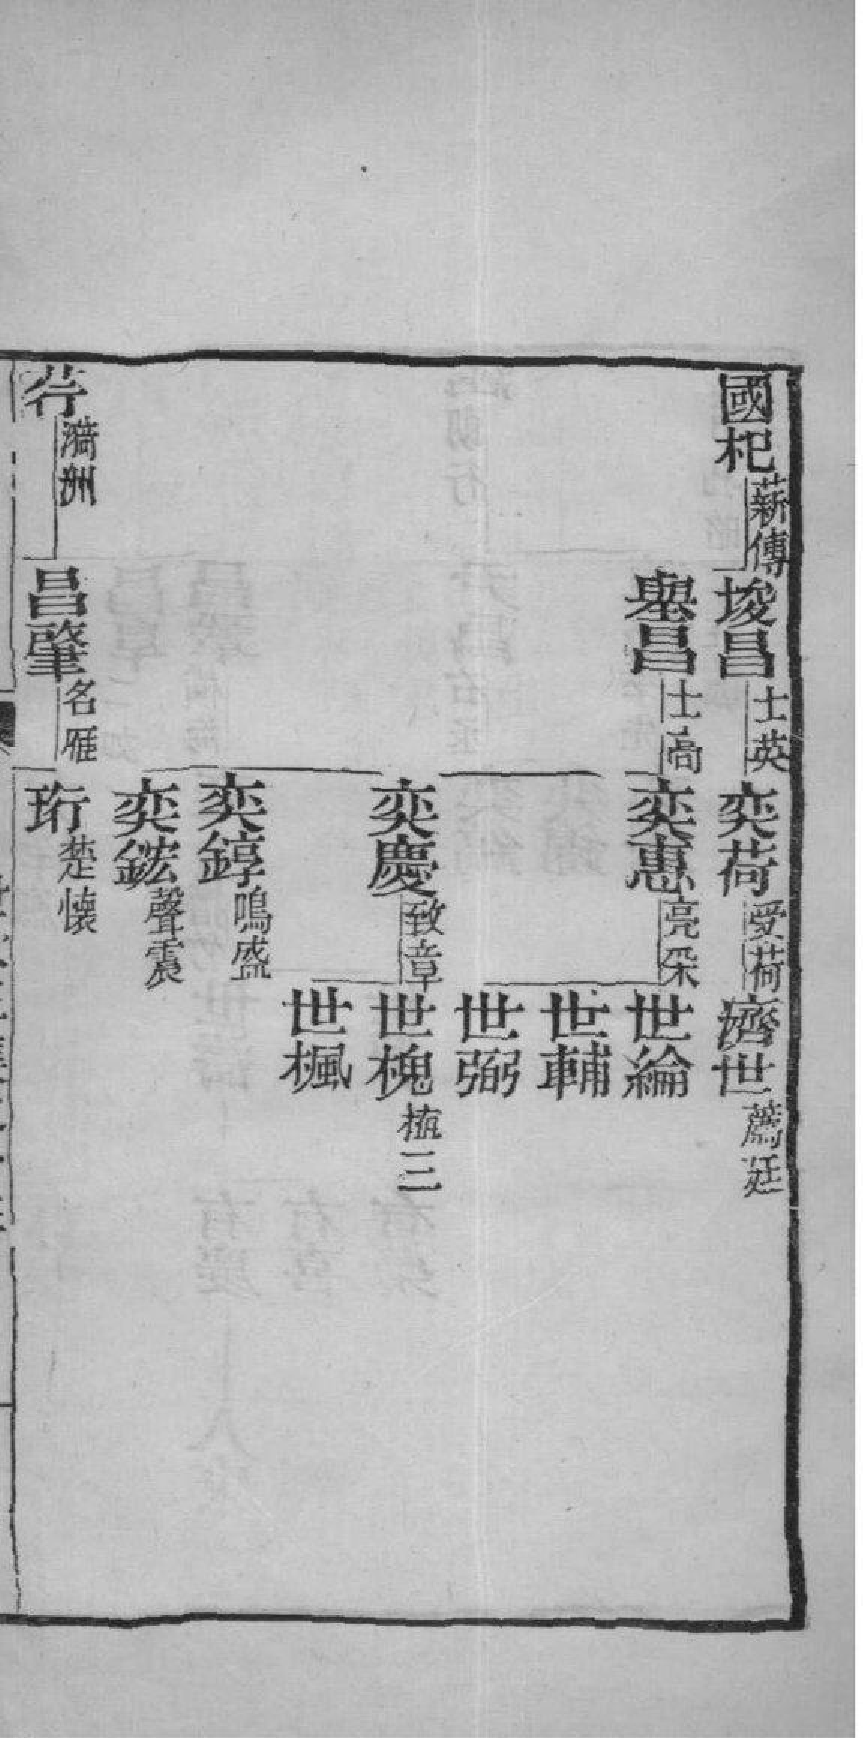 國杞 薪傳 埈昌 士英 奕荷 受荷 濟世 薦廷
舉昌 士高 奕惠 亮采 世綸
世輔
世弼
奕慶 致章 世槐 植三
世楓
奕錞 鳴盛
奕鋐 聲震
荇 漪洲 昌肇 名雁 珩 楚懷